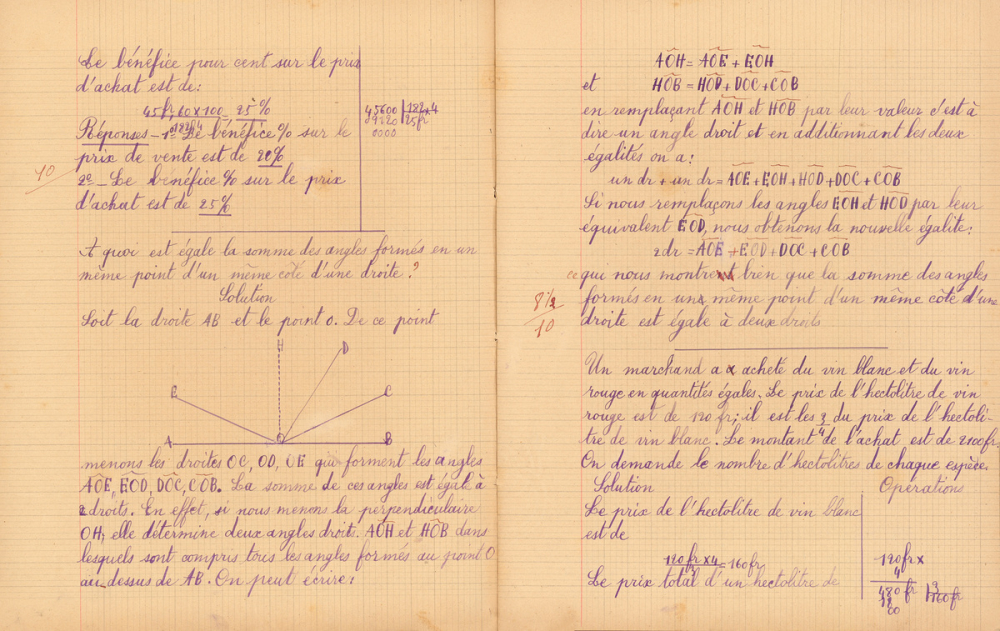 Le bénéfice pour cent sur le prix
d'achat est de:
45fr,60 x 100 = 25 %
182fr4
45600 | 182,4
9120 25fr
0000
Réponses - 1º Le bénéfice % sur le
prix de vente est de 20%
2º - Le bénéfice % sur le prix
d'achat est de 25%
10
A quoi est égale la somme des angles formés en un
même point d'un même côté d'une droite ?
Solution
Soit la droite AB et le point O. De ce point
H D
E C
A O B
menons les droites OC, OD, OE qui forment les angles
AOE, EOD, DOC, COB. La somme de ces angles est égale à
2 droits. En effet, si nous menons la perpendiculaire
OH, elle détermine deux angles droits. AOH et HOB dans
lesquels sont compris tous les angles formés au point O
au-dessus de AB. On peut écrire:
AOH = AOE + EOH
et HOB = HOD + DOC + COB
en remplaçant AOH et HOB par leur valeur c'est à
dire un angle droit et en additionnant les deux
égalités on a:
un dr + un dr = AOE + EOH + HOD + DOC + COB
Si nous remplaçons les angles EOH et HOD par leur
équivalent EOD, nous obtenons la nouvelle égalité:
2dr = AOE + EOD + DOC + COB
ce qui nous montre bien que la somme des angles
formés en un même point d'un même côté d'une
droite est égale à deux droits
8 1/2
10
Un marchand a acheté du vin blanc et du vin
rouge en quantités égales. Le prix de l'hectolitre de vin
rouge est de 120 fr; il est les 3/4 du prix de l'hectoli-
tre de vin blanc. Le montant de l'achat est de 2100fr.
On demande le nombre d'hectolitres de chaque espèce.
Solution Opérations
Le prix de l'hectolitre de vin blanc
est de
120fr x 4 = 160fr
3
Le prix total d'un hectolitre de
120fr x
4
480fr | 3
18 160fr
00